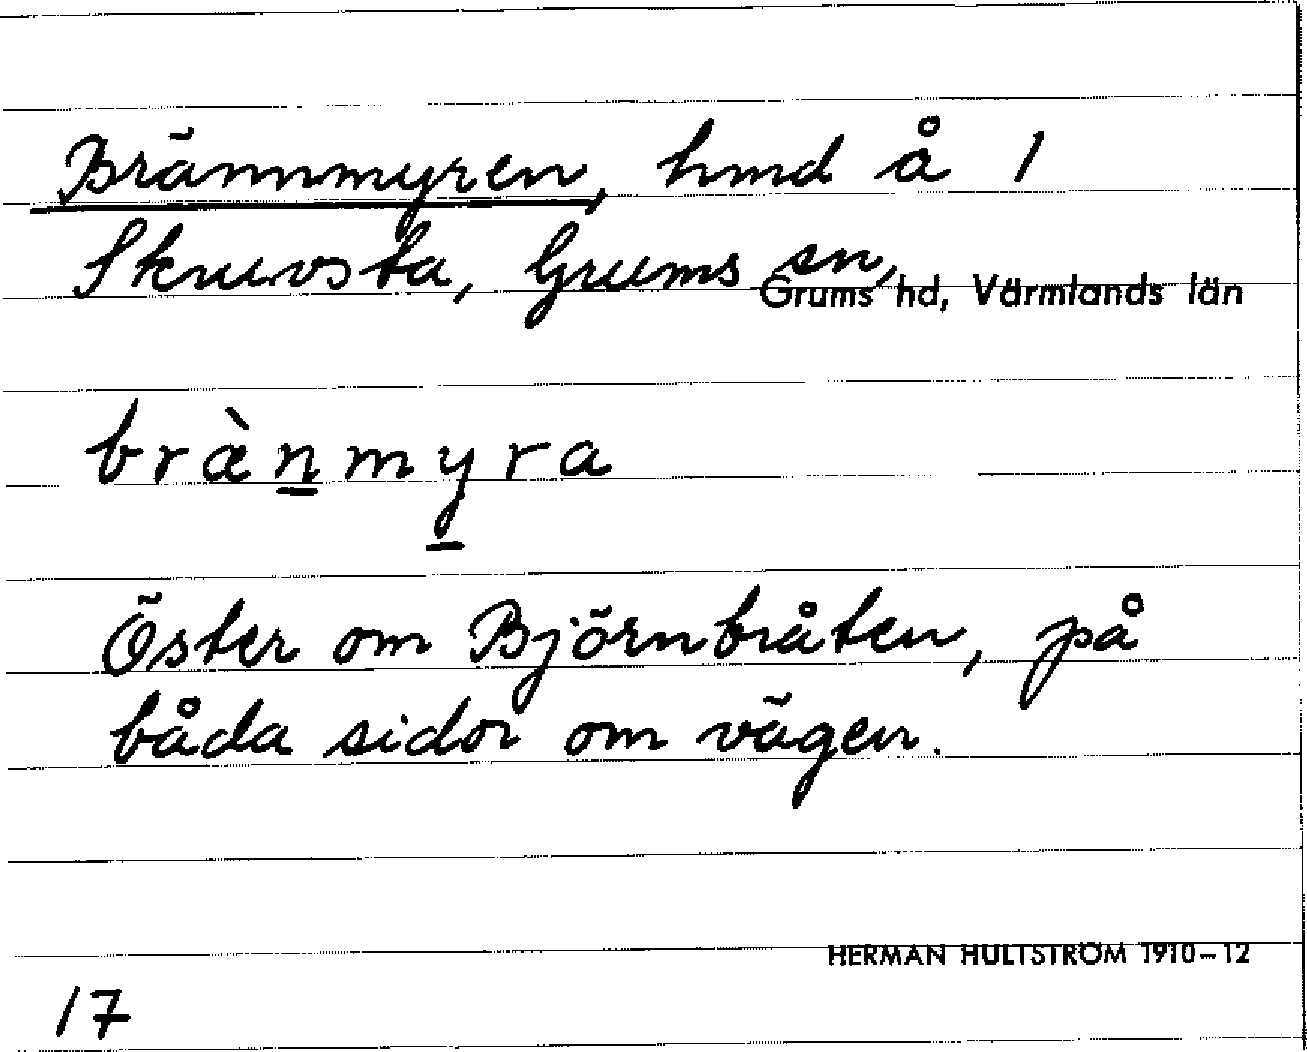 Brännmyren, hmd å 1
Skruvsta, Grums sn,
Grums hd, Värmlands län
bræ̀n̲my̲ra
Öster om Björnbråten, på
båda sidor om vägen.
HERMAN HULTSTRÖM 1910–12
17